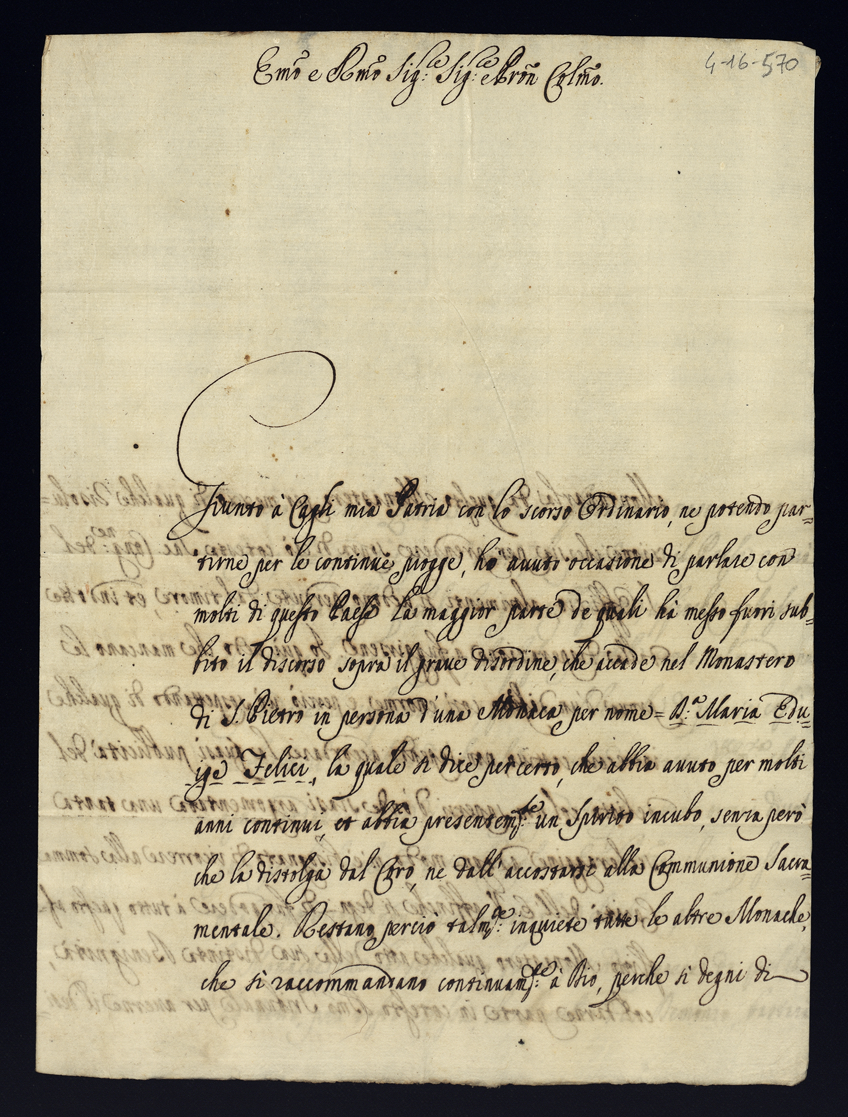 Emo e Rmo Sig:re Sig:re e Pron Colmo.
4-16-570
Giunto à Cagli mia Patria con lo scorso Ordinario, ne potendo par=
tirne per le continue piogge, ho avuto occasione di parlare con
molti di questo Paese la maggior parte de quali hà messo fuori sub=
bito il discorso sopra il grave disordine, che accade nel Monastero
di S. Pietro in persona d'una Monaca per nome = D:a Maria Edu=
ige Felici, la quale si dice per certo, che abbia avuto per molti
anni continui, et abbia presentem:te un Spirito incubo, senza però
che la distolga dal Coro, ne dall'accostarsi alla Communione Sacra=
mentale. Restano perciò talm:te inquiete tutte le altre Monache,
che si raccommandano continuam:te à Dio, perche si degni di